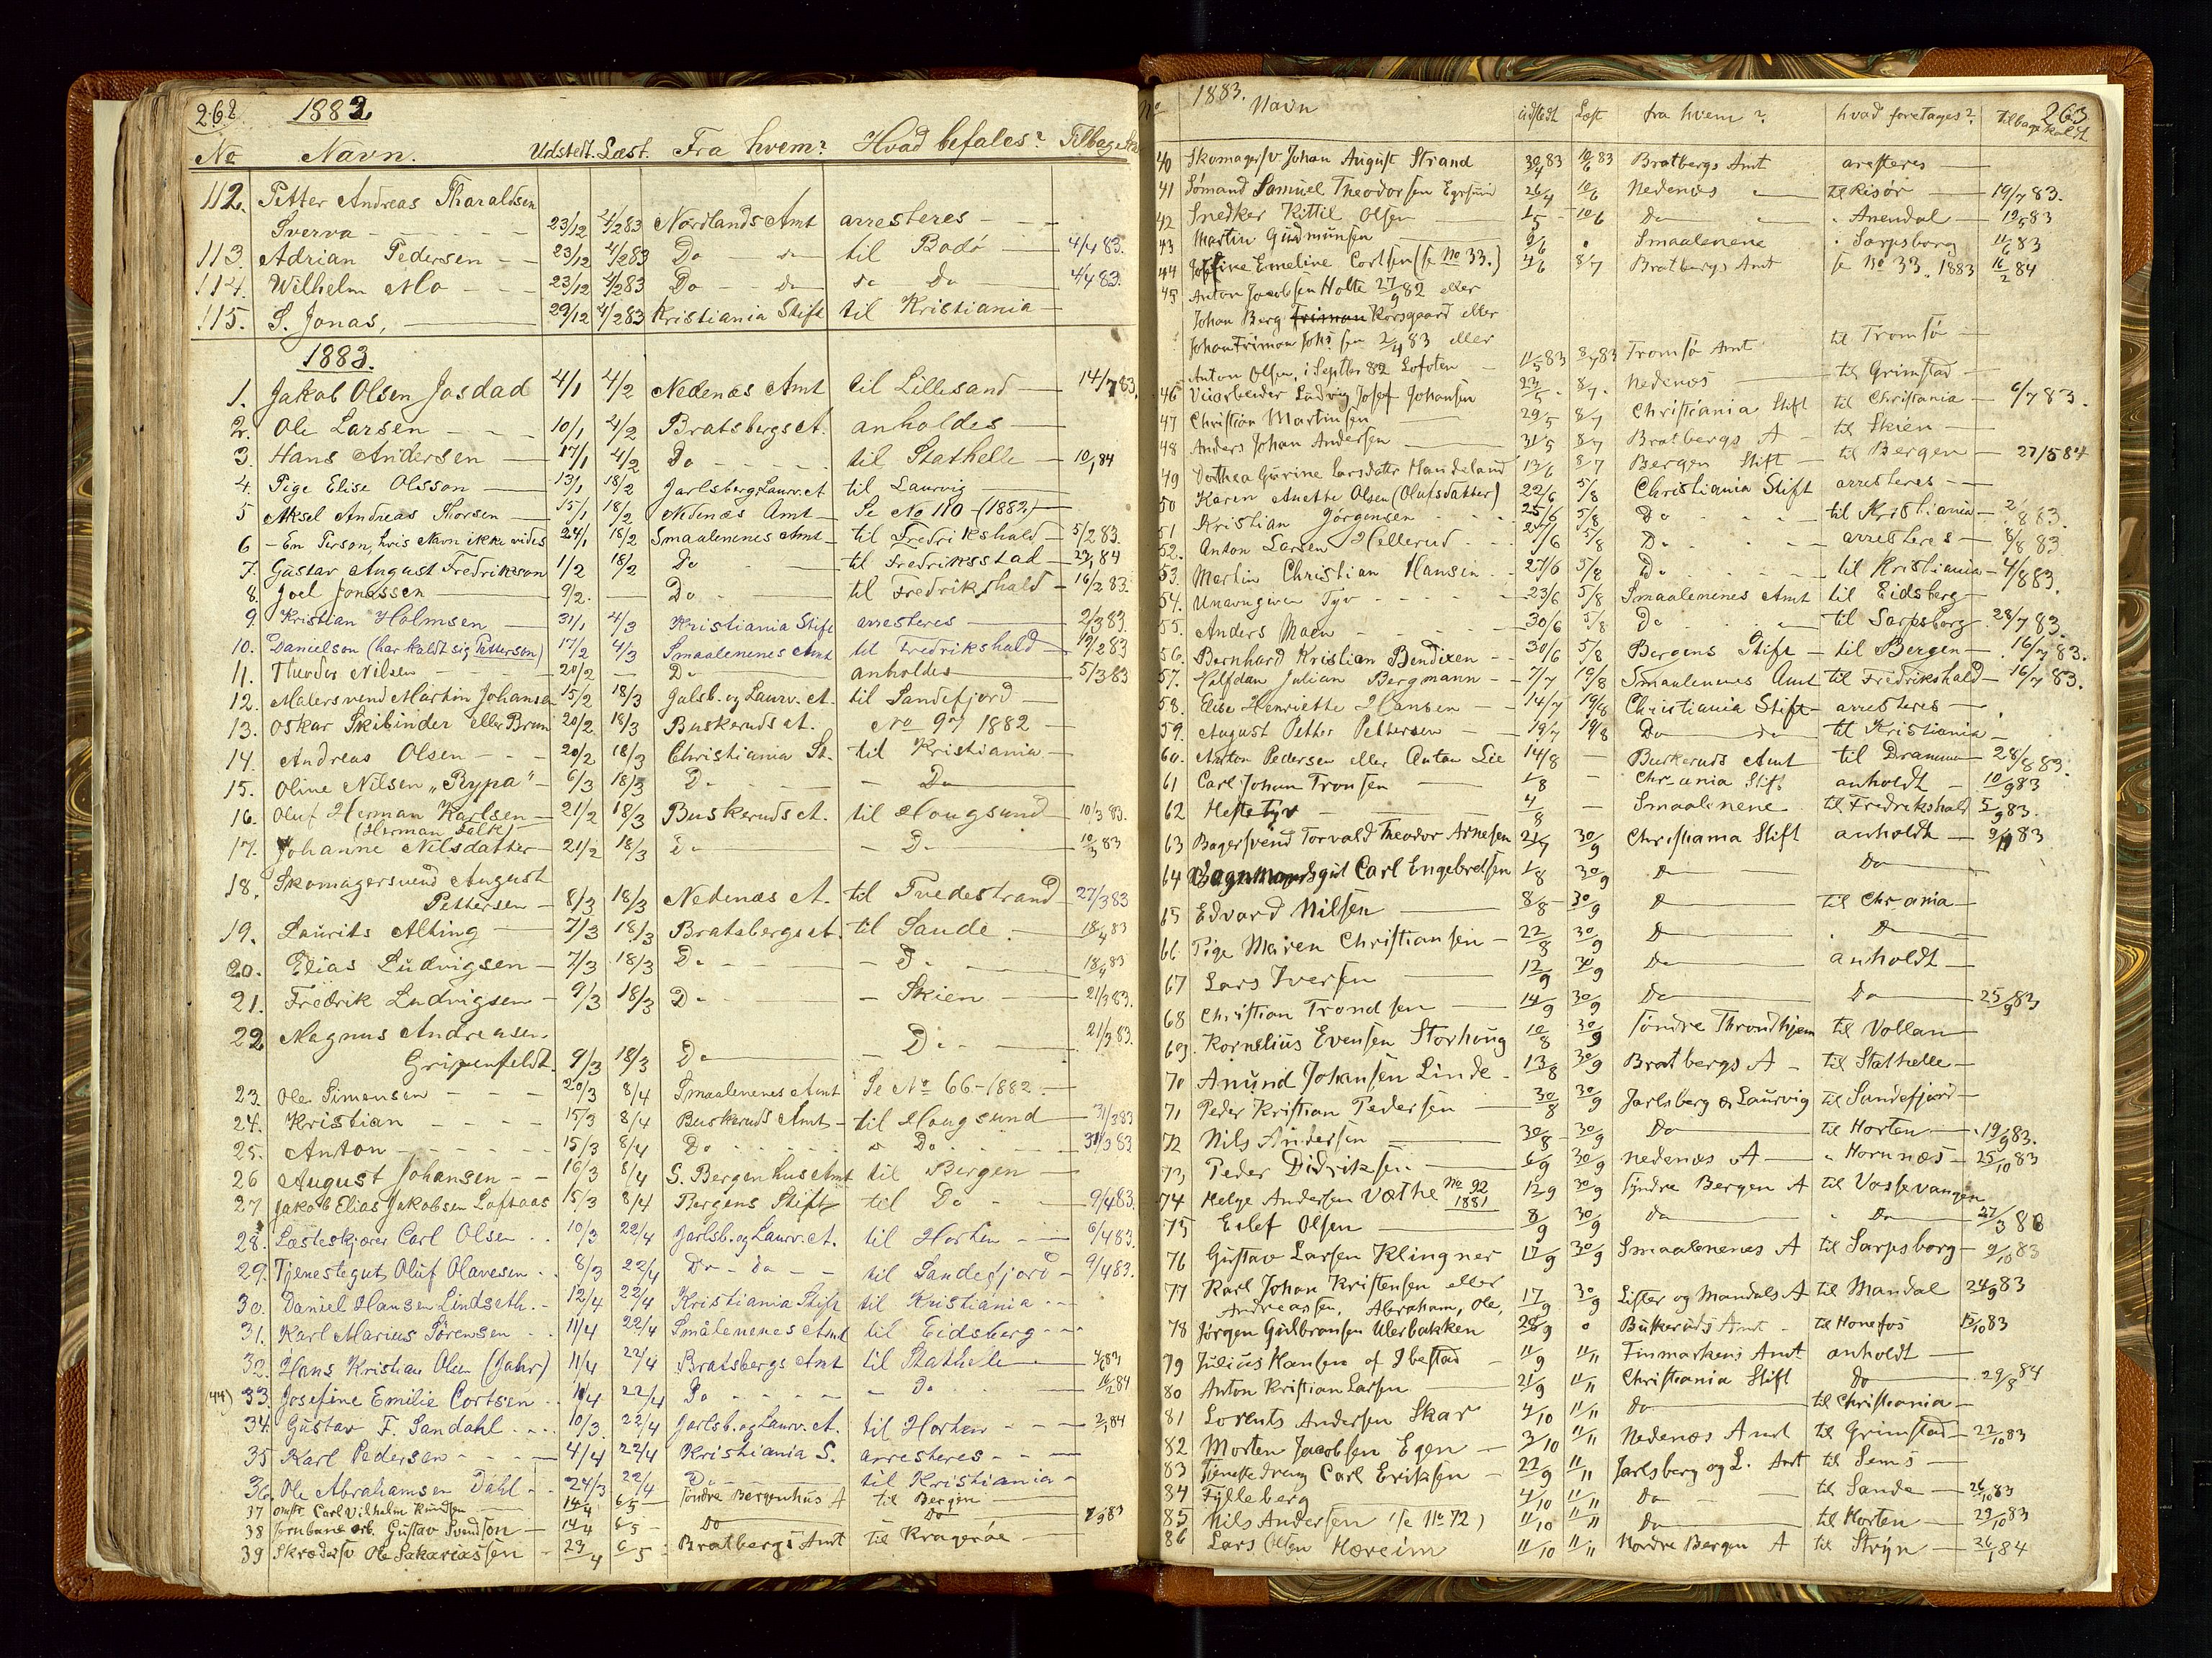 262 1882
No Navn. Udstedt. Læst. Fra hvem? Hvad befales? Tilbage
112. Petter Andreas Tharaldsen
Sverva - - - 23/12 4/2 83 Nordlands Amt arresteres - - -
113. Adrian Pedersen - - 23/12 4/2 83 Do - do til Bodö - 4/4 83.
114. Wilhelm Mo - - - 23/12 4/2 83 Do - do do Do 4/4 83.
115. S. Jonas, 29/12 4/2 83 Kristiania Stift til Kristiania
1883.
1. Jakob Olsen Jasdad 4/1 4/2 Nedenæs Amt til Lillesand 14/7 83.
2. Ole Larsen - - - 10/1 4/2 Bratsbergs A. anholdes
3. Hans Andersen 17/1 4/2 Do - - - til Stathelle 10/1 84
4. Pige Elise Olsson 13/1 18/2 Jarlsberg. Laurv. A til Laurvig
5 Aksel Andreas Thorsen 15/1 18/2 Nedenæs Amt Se No 110 (1882)
6 - En Person, hvis Navn ikke vides 24/1 18/2 Smaalenenes Amt til Fredrikshald 5/2 83.
7. Gustav August Fredrikson 1/2 18/2 Do til Fredriksstad 84
8. Joel Jonassen 9/2. - Do til Fredrikshald 16/2 83.
9. Kristian Holmsen 31/1 4/3 Kristiania Stift arresteres 2/3 83.
10. Danielson (har kaldt sig Petterson) 17/2 4/3 Smaalenenes Amt til Fredrikshald 19/2 83
11. Theodor Nilsen 20/2 - Do anholdes 5/3 83
12. Malersvend Martin Johansen 15/2 18/3 Jalsb. og Laurv. A. til Sandefjord
13. Oskar Skibinder eller Brun 20/2 18/3 Buskeruds A. No 97 1882
14. Andreas Olsen - - - 20/2 18/3 Christiania St. til Kristiania
15. Oline Nilsen "Rypa" 6/3 18/3 Do - Do
16. Oluf Herman Karlsen 21/2 18/3 Buskeruds A. til Hougsund 10/3 83.
(Herman Falk)
17. Johanne Nilsdatter 21/2 18/3 Do - Do 10/3 83
18. Skomagersvend August
Pettersen 8/3 18/3 Nedenæs A. til Tvedestrand 27/3 83
19. Laurits Alting 7/3 18/3 Bratsbergs A. til Sande. 18/4 83
20. Elias Ludvigsen 7/3 18/3 Do - Do 18/4 83
21. Fredrik Ludvigsen 9/3 18/3 Do - Skien 21/3 83.
22 Magnus Andreasen
Gripenfeldt. 9/3 18/3 Do Do 21/3 83.
23. Ole Simensen 20/3 8/4 Smaalenenes Amt Se No 66-1882.
24. Kristian - - - 15/3 8/4 Buskeruds Amt til Hougsund 31/3 83
25. Anton - - - 15/3 8/4 Do Do 31/3 83
26 August Johansen - - 16/3 8/4 S. Bergenhus Amt til Bergen
27 Jakob Elias Jakobsen Loftaas 15/3 8/4 Bergens Stift til Do 9/4 83.
28. Læsteskjærer Carl Olsen 10/3 22/4 Jarlsb. og Laurv. A. til Horten 6/4 83.
29. Tjenestegut Oluf Olavesen 8/3 22/4 Do - do til Sandefjord 9/4 83.
30. Daniel Hansen Lindseth. 12/4 22/4 Kristiania Stift til Kristiania
31. Karl Marius Sörensen 11/4 22/4 Smålenenes Amt til Eidsberg
32. Hans Kristian Olsen (Jahr) 11/4 22/4 Bratsbergs Amt til Stathelle 83
(44) 33. Josefine Emilie Cortsen 11/4 22/4 Do - Do 16/2 84
34. Gustav F. Sandahl 10/3. 22/4 Jarlsb. og Laurv. A. til Horten 2/1 84
35 Karl Pedersen 4/4 22/4 Kristiania S. arresteres
36. Ole Abrahamsen Dahl 24/3 22/4 Do til Kristiania
37 Omstr. Carl Vilhelm Knudsen 14/4 6/5 Söndre Bergenhus A til Bergen
38 Jernbane arb. Gustav Svendson 14/4 6/5 Do Do 83
39 Skrædersv Ole Sakariassen 23/4 6/5 Bratbergs Amt til Kragerøe
No 1883. Navn udstedt Læst fra hvem? hvad foretages? Tilbagekaldt 263
40 Skomagersv Johan August Strand 30/4 83 10/6 83 Bratbergs Amt aresteres
41 Sömand Samuel Theodorsen Egesund 26/4 10/6 Nedenæs til Risör 19/7 83.
42 Snedker Kittil Olsen 1/5 10/6 Do " Arendal 83
43 Martin Gudmunsen 6/6 " Smaalenene " Sarpsborg 11/6 83
44 Josefine Emeline Cortsen (se No 33.) 4/6 8/7 Bratbergs Amt se No 33. 1883 16/2 84
45 Anton Jacobsen Holte 27/9 82 eller
Johan Berg Friman Korsgaard eller
Johan Friman Johs sen 2/4 83 eller
Anton Olsen, i Septbr 82 Lofoten 11/5 83 8/7 83 Tromsö Amt til Tromsö
46 Viiarbeider Ludvig Josef Johansen 23/5 8/7. Nedenæs til Grimstad
47 Christian Martinsen 29/5 8/7 Christiania Stift til Christiania 6/7 83.
48 Anders Johan Andersen 31/5 8/7 Bratbergs A til Skien
49 Dorthea Gurine Larsdatter Haudeland 13/6 8/7 Bergen Stift til Bergen 27/5 84
50 Karen Anette Olsen (Olufsdatter) 22/6 5/8 Christiania Stift arresteres
51 Kristian Jörgensen 25/6 5/8 Do til Kristiania 2/8 83.
52. Anton Larsen Hellerud 27/6 5/8 Do arresteres 8/8 83
53. Martin Christian Hansen 27/6 5/8 Do til Kristiania 4/8 83.
54. Unavngiven Tyv 23/6 5/8 Smaalenenes Amt til Eidsberg
55. Anders Maen 30/6 5/8 Do til Sarpsborg 28/7 83.
56. Bernhard Kristian Bendixen 30/6 5/8 Bergens Stift til Bergen 16/7 83.
57. Halfdan Julian Bergmann 7/7 19/8 Smaalenenes Amt til Fredrikshald 16/7 83.
58. Elise Henriette Hansen 14/7 19/8 Christiania Stift arresteres
59. August Petter Pettersen 19/7 19/8 Do do til Kristiania
60. Anton Pedersen eller Anton Lie 14/8 - Buskeruds Amt til Drammen 28/8 83.
61 Carl Johan Tronsen 1/8 - Chr-ania Stift anholdt 10/9 83
62 Hestetyv 4/8 - Smaalenene til Fredrikshald 5/9 83.
63 Bagersvend Torvald Theodor Arnesen 21/7 30/9 Christiania Stift anholdt 9/11 83
64 gut Carl Engebretsen 1/8 30/9 Do Do
65 Edvard Nilsen 8/8 30/9 Do til Chr ania
66 Pige Maren Christiansen 22/8 30/9 Do " Do
67 Lars Iversen 12/9 30/9 Do anholdt
68 Christian Trondsen 14/9 30/9 Do Do 25/9 83
69. Kornelius Evensen Storhoug 10/8 30/9 Söndre Throndhjem til Vollan
70 Anund Johansen Linde 13/8 30/9 Bratbergs A til Stathelle
71 Peder Kristian Pedersen 30/8 30/9 Jarlsberg & Laurvig til Sandefjord
72 Nils Andersen 30/8 30/9 Do til Horten 19/9 83.
73 Peder Didriksen 6/9 30/9 Nedenæs A " Hornnæs 25/10 83
74 Helge Andersen Væthe No 92 1881 12/9 30/9 Syndre Bergen A til Vossevangen
75 Eilef Olsen 8/9 30/9 Do " Do 27/3 86
76 Gustav Larsen Klingner 17/9 30/9 Smaalenenes A til Sarpsborg 9/10 83
77 Karl Johan Kristensen eller
Andreassen, Abraham, Ole, 17/9 30/9 Lister og Mandals A til Mandal 24/9 83
78 Jörgen Gulbransen Ulerbakken 28/9 " Buskeruds Amt til Honefos 15/10 83
79 Julius Hansen af Ibestad 11/9 11/11 Finmarkens Amt anholdt
80 Anton Kristian Larsen 21/9 11/11 Christiania Stift Do 29/8 84
81 Lorents Andersen Skar 4/10 11/11 Do til Christiania
82 Morten Jacobsen Egen 3/10 11/11 Nedenæs Amt til Grimstad 22/10 83
83 Tjenestedreng Carl Eriksen 22/9 11/11 Jarlsberg og L. Amt til Sems
84 Fylleberg 4/10 11/11 Do til Sande 26/10 83
85 Nils Andersen (se No 72) 11/10 11/11 Do til Horten 29/10 83
86 Lars Olsen Hæreim 11/10 11/11 Nordre Bergen A til Stryn 26/1 84